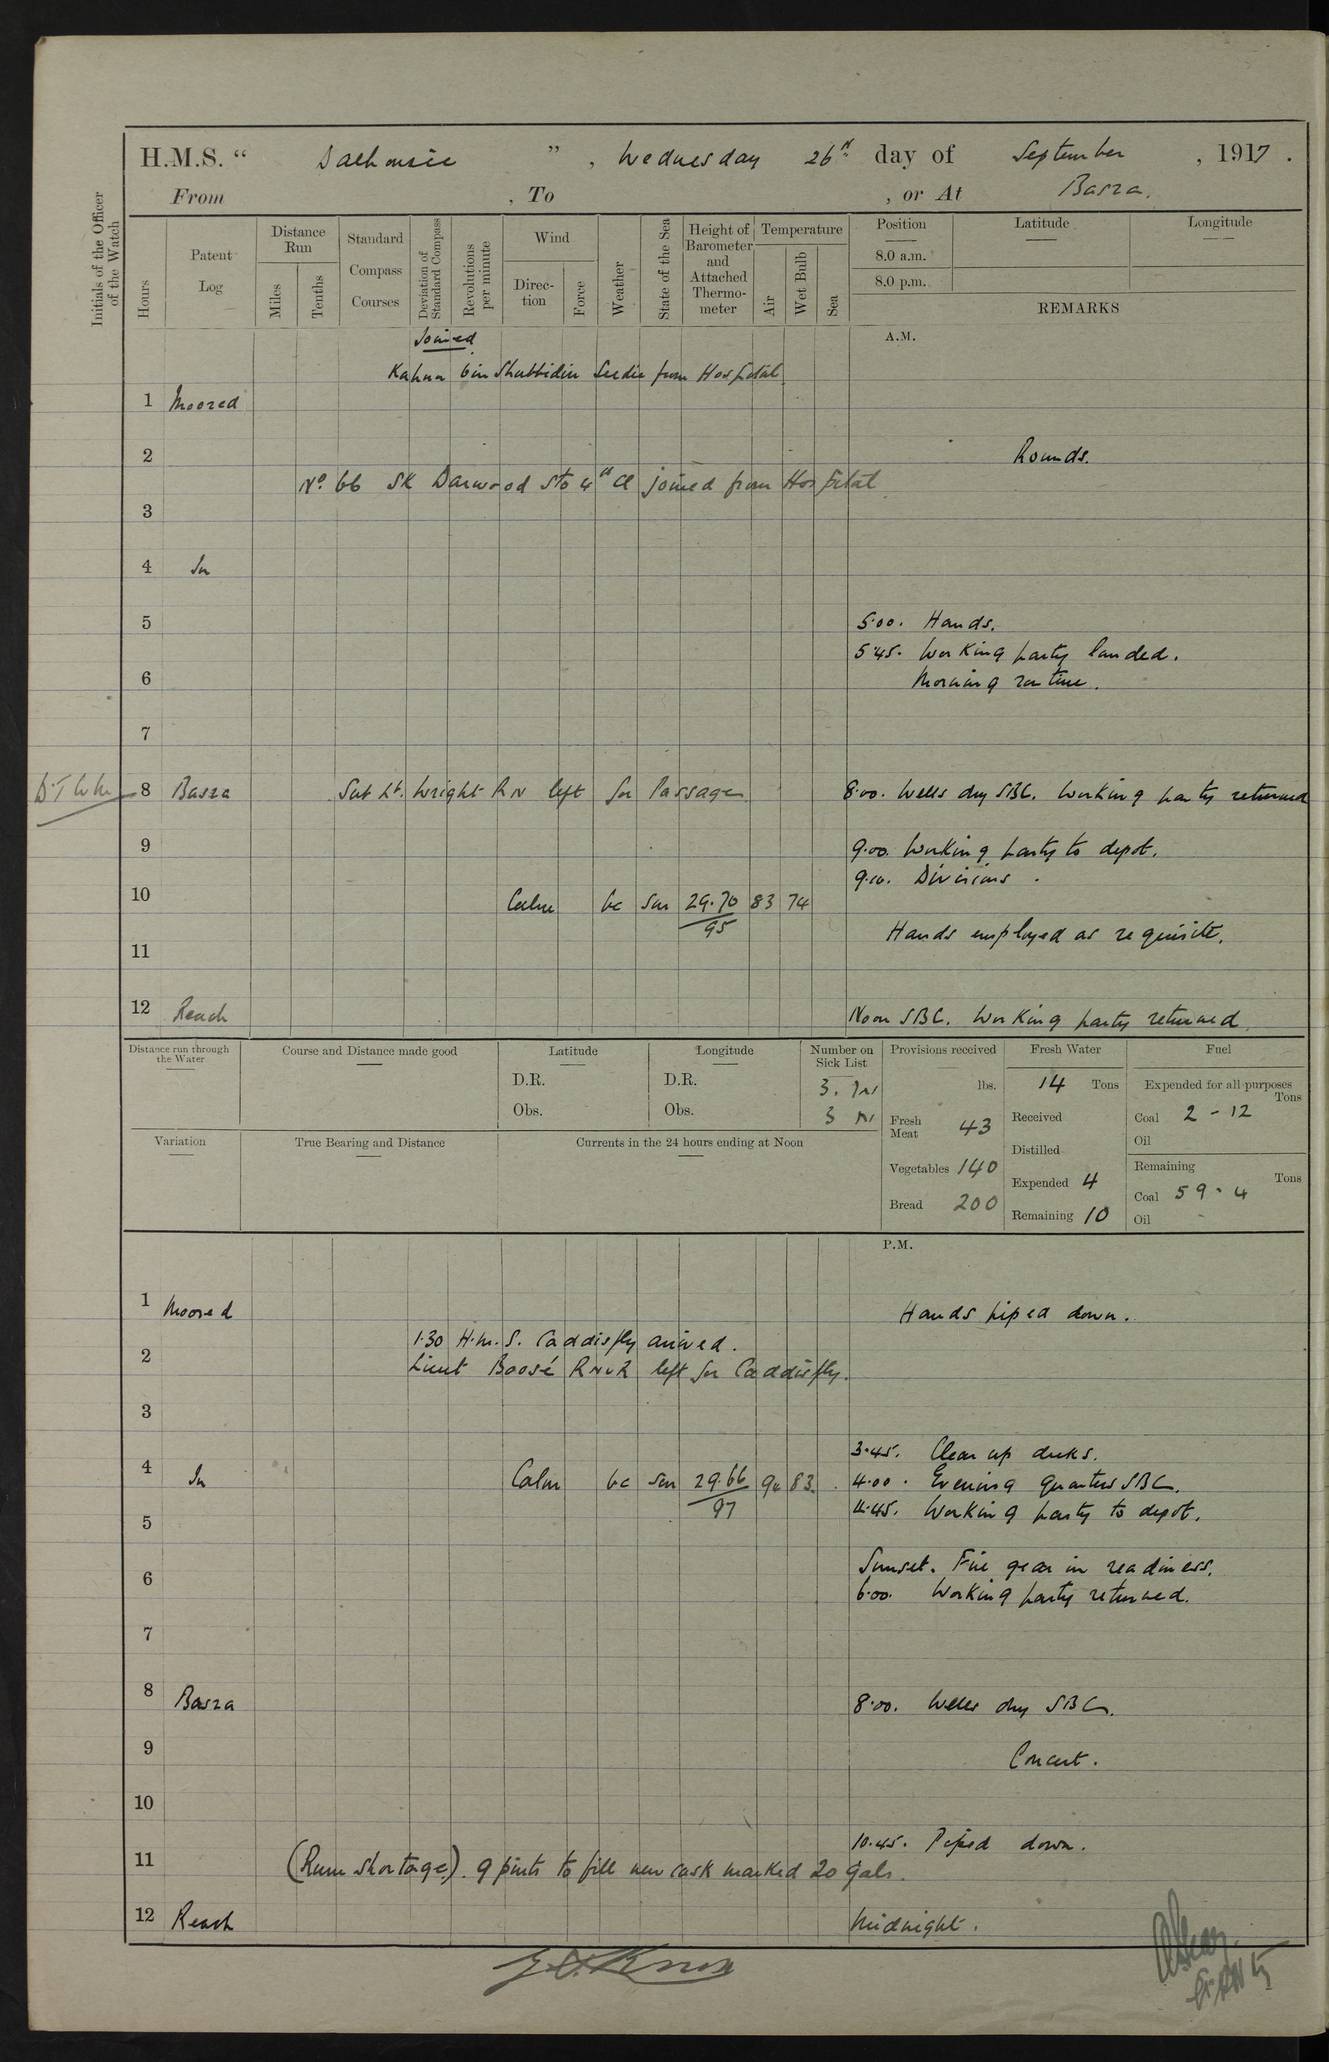 H.M.S. " Dalhousie ", Wednesday 26th day of September, 1917.
From , To , or At Basra.
Initials of the Officer of the Watch
Hours
Patent Log
Distance Run
Miles
Tenths
Standard Compass Courses
Deviation of Standard Compass
Revolutions per minute
Wind
Direction
Force
Weather
State of the Sea
Height of Barometer and Attached Thermometer
Temperature
Air
Wet Bulb
Sea
Position
8.0 a.m.
8.0 p.m.
Latitude
Longitude
REMARKS
Joined A.M.
bin Shubbidin Seedie from Hospital
1 Moored
2 Rounds.
No. 66 SK Darwood Sto 4th Cl joined from Hospital
3
4 In
5 5.00. Hands.
5.45. Working party landed.
6 Morning routine.
7
8 Basra Sub Lt. Wright RN left for Passage 8.00. Wells dry SBC. Working party returned
9 9.00. Working party to depot.
9.10. Divisions.
10 Calm bc sm 29.70 83 74
95
Hands employed as requisite.
11
12 Reach Noon SBC. Working party returned
Distance run through the Water
Course and Distance made good
Latitude
D.R.
Obs.
Longitude
D.R.
Obs.
Number on Sick List
3.
3 N
Provisions received
lbs.
Fresh Meat 43
Vegetables 140
Bread 200
Fresh Water
14 Tons
Received
Distilled
Expended 4
Remaining 10
Fuel
Expended for all purposes
Tons
Coal 2 - 12
Oil
Remaining
Tons
Coal 59 - 4
Oil
Variation
True Bearing and Distance
Currents in the 24 hours ending at Noon
P.M.
1 Moored Hands piped down.
1.30 H.M.S. Caddisfly arrived.
2
Lieut Boosé RNVR left for Caddisfly.
3
3.45. Clear up decks.
4 In Calm bc sm 29.66 94 83. 4.00. Evening quarters SBC.
97
4.45. Working party to depot.
5
Sunset. Fire gear in readiness.
6
6.00. Working party returned.
7
8 Basra 8.00. Wells dry SBC.
9 Concert.
10
10.45. Piped down.
11 (Rum shortage). 9 pints to fill new cask marked 20 gals.
12 Reach Midnight.